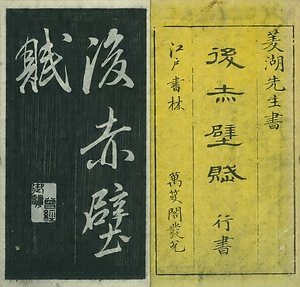 菱湖先生書
後赤壁賦
行書
江戸書林
萬笈閣發兌
後赤壁
賦